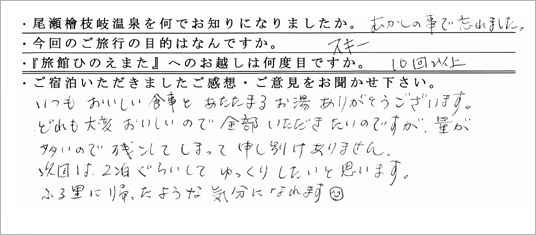 ・尾瀬檜枝岐温泉を何でお知りになりましたか。 むかしの事で忘れました。
・今回のご旅行の目的はなんですか。 スキー
・『旅館ひのえまた』へのお越しは何度目ですか。 10回以上
・ご宿泊いただきましたご感想・ご意見をお聞かせ下さい。
いつも おいしい 食事と あたたまる お湯 ありがとうございます。
どれも大変 おいしいので 全部 いただきたいのですが、量が
多いので 残こして しまって 申し訳けありません。
次回は、2泊ぐらいして ゆっくり したいと思います。
ふる里に帰ったような 気分に なれます☺